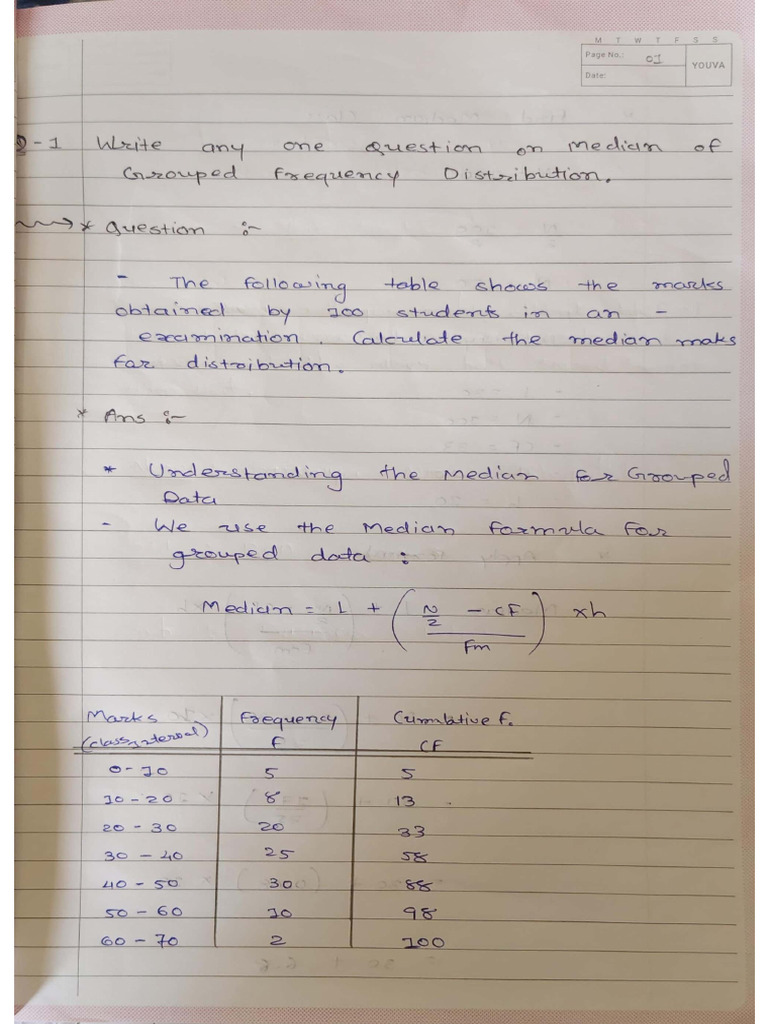 M T W T F S S
Page No.: 01
YOUVA
Date:
Q-1 Write any one Question on Median of
Grouped Frequency Distribution.
* Question :-
- The following table shows the marks
obtained by 100 students in an -
examination. Calculate the median maks
for distribution.
* Ans :-
* Understanding the Median for Grouped
Data
- We use the Median formula for
grouped data :
Median = L + (N/2 - CF / Fm) xh
Marks Frequency Cumlative f.
(class interval) F CF
0-10 5 5
10-20 8 13
20-30 20 33
30-40 25 58
40-50 30 88
50-60 10 98
60-70 2 100